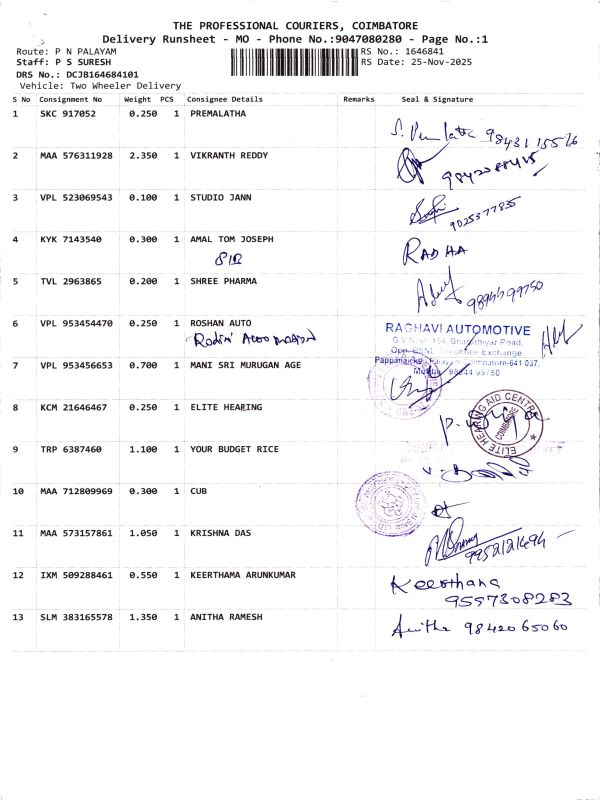 THE PROFESSIONAL COURIERS, COIMBATORE
Delivery Runsheet - MO - Phone No.:9047080280 - Page No.:1
Route: P N PALAYAM RS No.: 1646841
Staff: P S SURESH RS Date: 25-Nov-2025
DRS No.: DCJB164684101
Vehicle: Two Wheeler Delivery
S No Consignment No Weight PCS Consignee Details Remarks Seal & Signature
1 SKC 917052 0.250 1 PREMALATHA
2 MAA 576311928 2.350 1 VIKRANTH REDDY
3 VPL 523069543 0.100 1 STUDIO JANN
9025377835
4 KYK 7143540 0.300 1 AMAL TOM JOSEPH RADHA
5 TVL 2963865 0.200 1 SHREE PHARMA
6 VPL 953454470 0.250 1 ROSHAN AUTO RAGHAVI AUTOMOTIVE
Opp. BSNL Telephone Exchange
7 VPL 953456653 0.700 1 MANI SRI MURUGAN AGE
8 KCM 21646467 0.250 1 ELITE HEARING ELITE HEARING AID CENTRE COIMBATORE
9 TRP 6387460 1.100 1 YOUR BUDGET RICE
10 MAA 712809969 0.300 1 CUB
11 MAA 573157861 1.050 1 KRISHNA DAS
9952121494
12 IXM 509288461 0.550 1 KEERTHAMA ARUNKUMAR Keerthana
9597308283
13 SLM 383165578 1.350 1 ANITHA RAMESH Anitha 9842065060